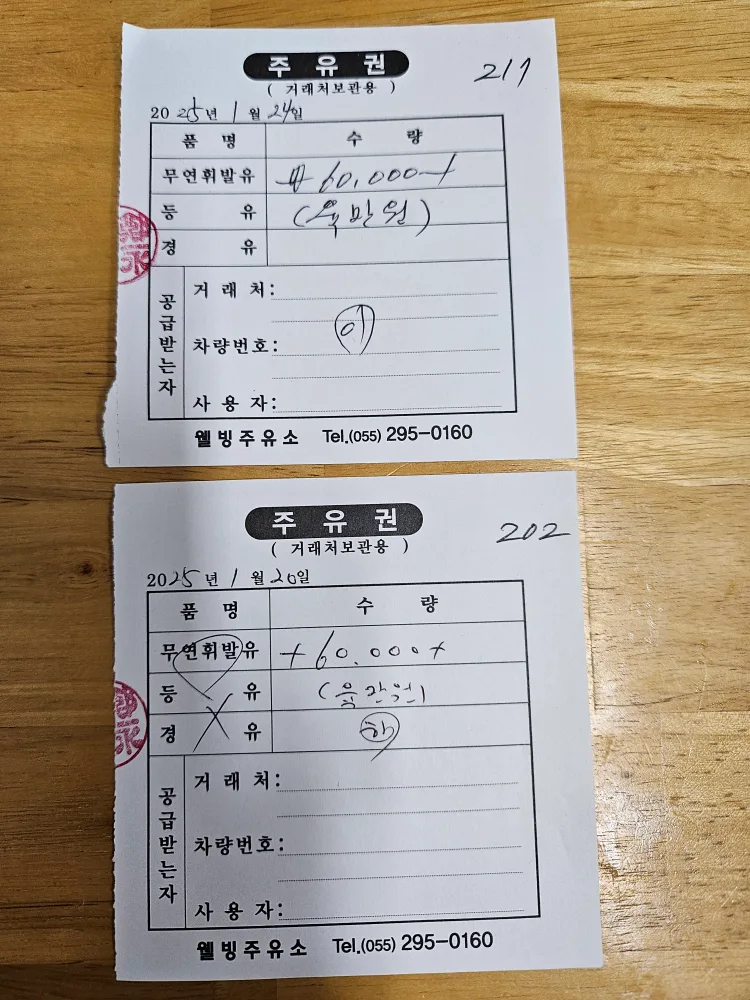 주유권
211
( 거래처보관용 )
2025년 1월 24일
품명 수량
무연휘발유 ₩60,000
등유 (육만원)
경유
공급받는자
거래처:
이
차량번호:
사용자:
웰빙주유소 Tel.(055) 295-0160
주유권
202
( 거래처보관용 )
2025년 1월 20일
품명 수량
무연휘발유 60.000
등유 (육만원)
경유 하
공급받는자
거래처:
차량번호:
사용자:
웰빙주유소 Tel.(055) 295-0160